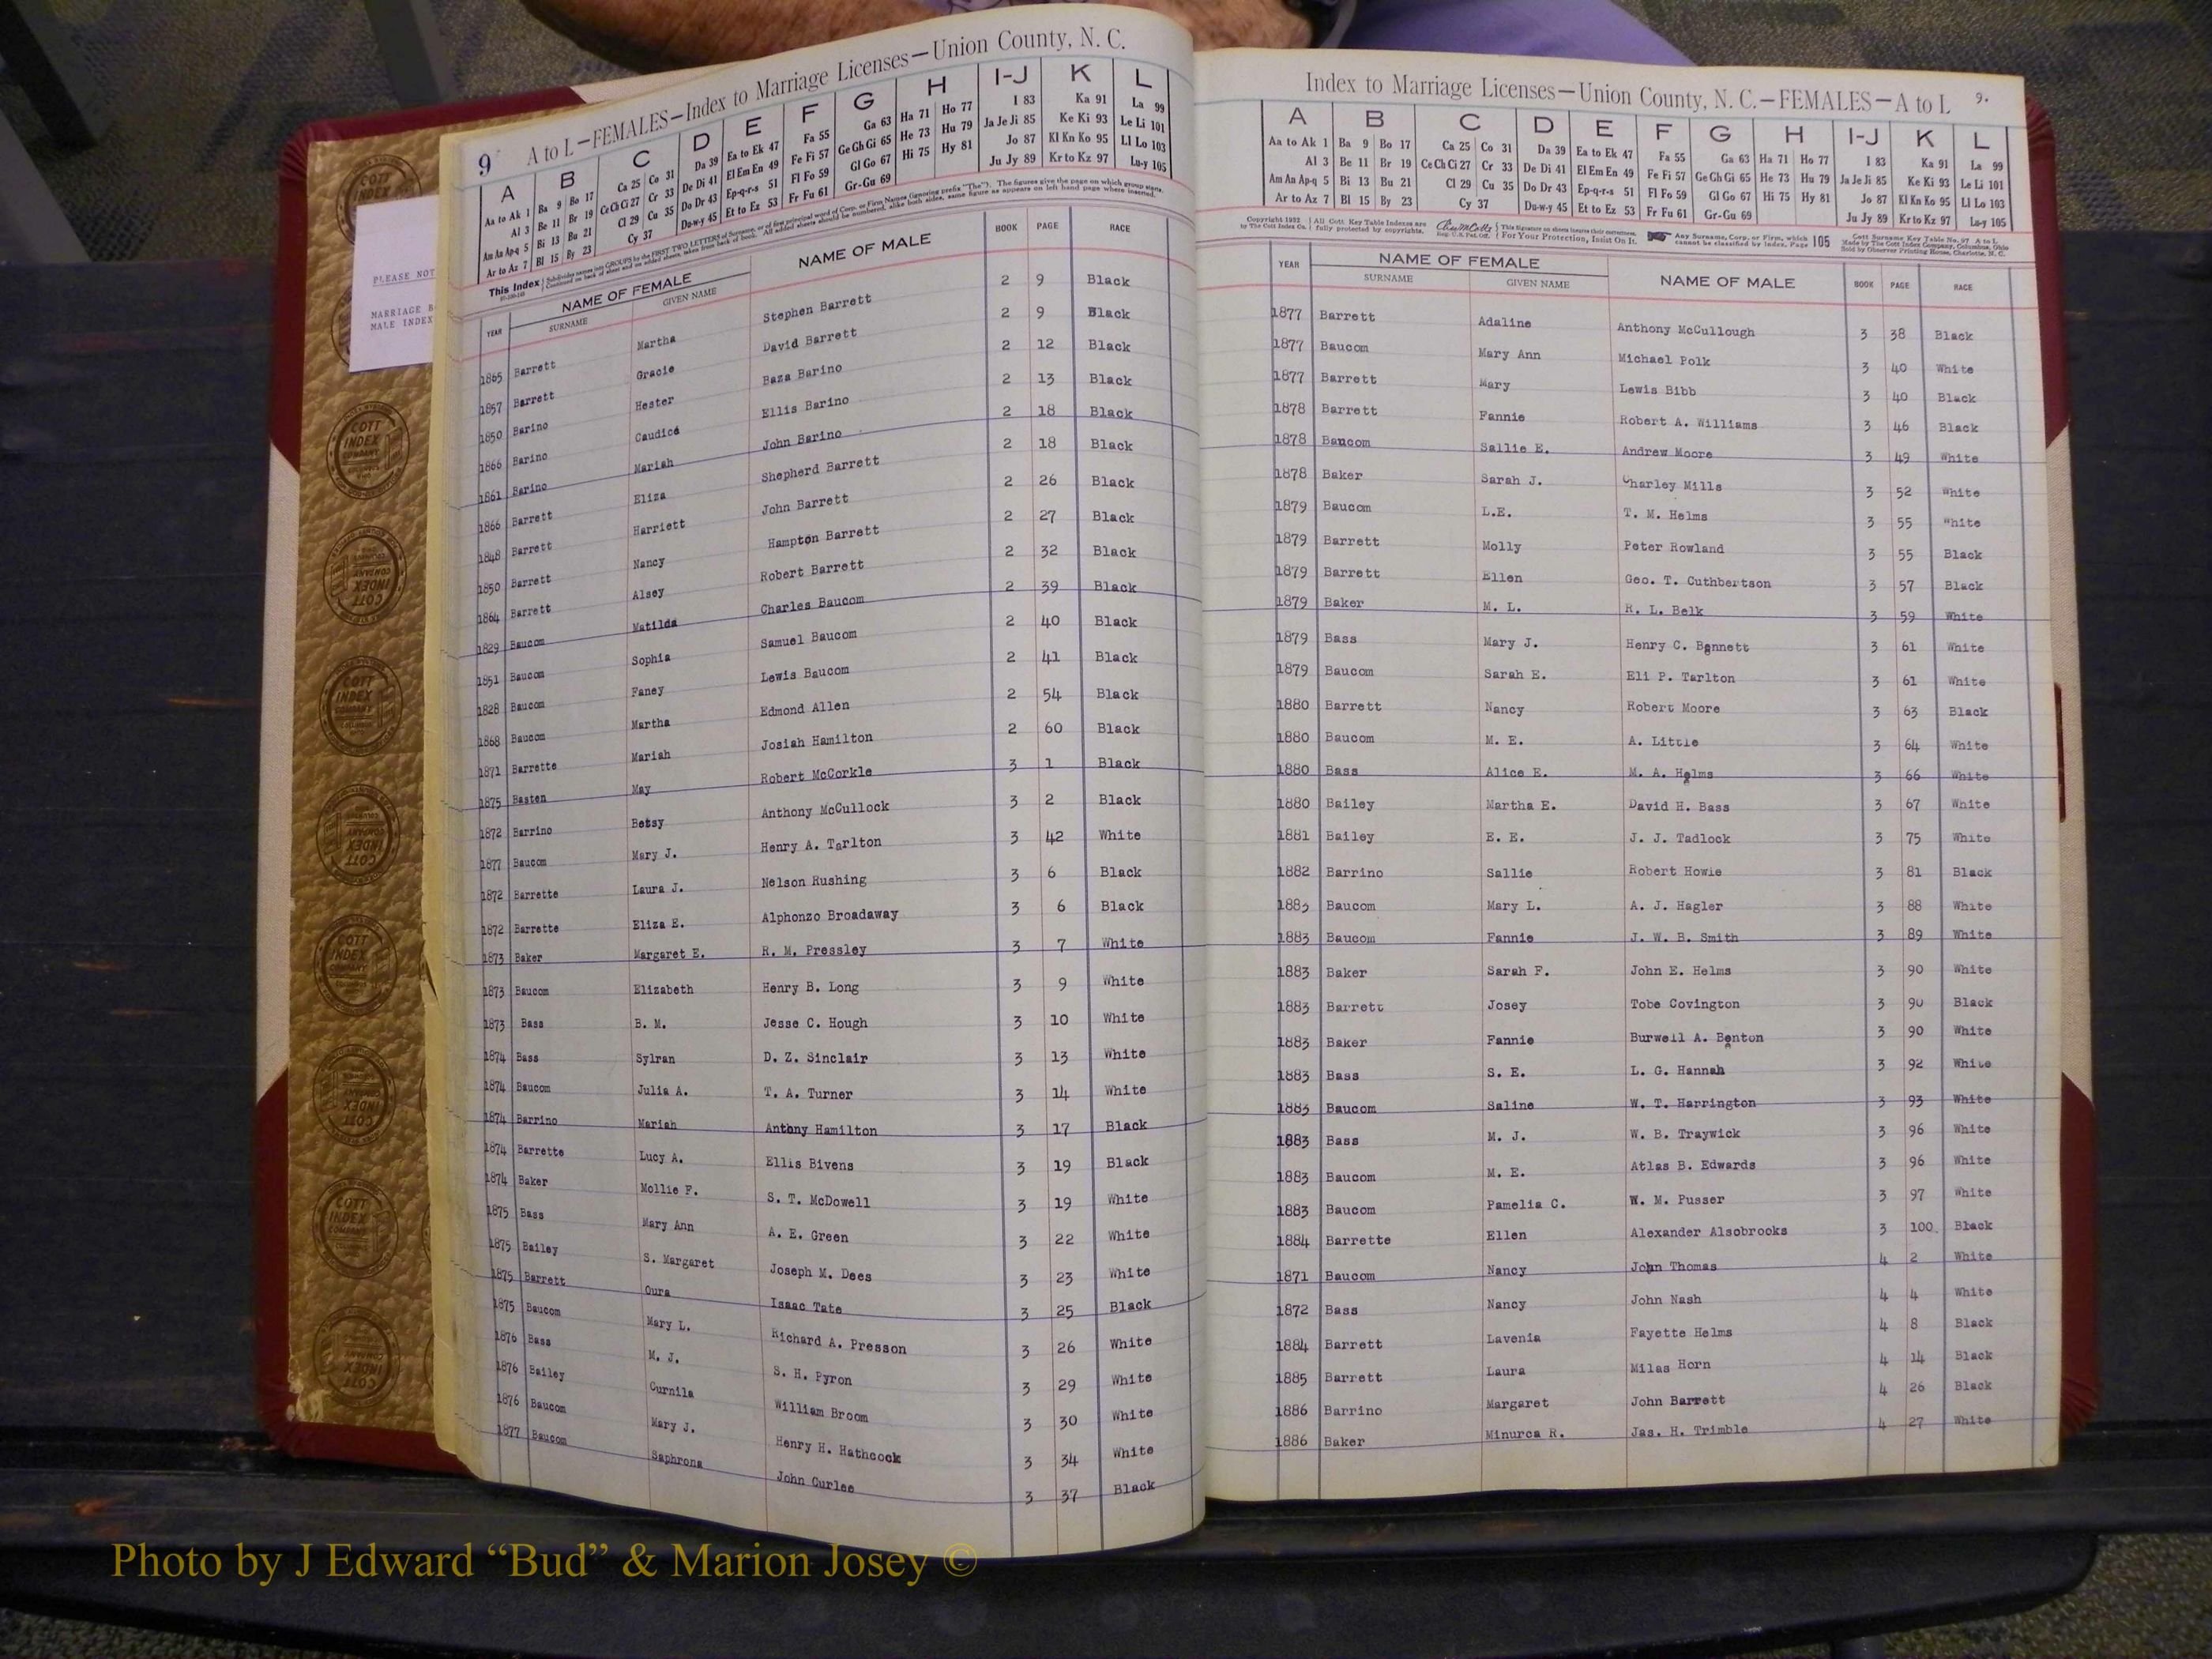 PLEASE NOT
MARRIAGE B
MALE INDEX
9 A to L—FEMALES—Index to Marriage Licenses—Union County, N. C.
A B C D E F G H I-J K L
Aa to Ak 1 Ba 9 Bo 17 Ca 25 Co 31 Da 39 Ea to Ek 47 Fa 55 Ga 63 Ha 71 Ho 77 I 83 Ka 91 La 99
Al 3 Be 11 Br 19 Ce Ch Ci 27 Cr 33 De Di 41 El Em En 49 Fe Fi 57 Ge Gh Gi 65 He 73 Hu 79 Ja Je Ji 85 Ke Ki 93 Le Li 101
Am An Ap-q 5 Bi 13 Bu 21 Cl 29 Cu 35 Do Dr 43 Ep-q-r-s 51 Fl Fo 59 Gl Go 67 Hi 75 Hy 81 Jo 87 Kl Kn Ko 95 Ll Lo 103
Ar to Az 7 Bl 15 By 23 Cy 37 Du-w-y 45 Et to Ez 53 Fr Fu 61 Gr-Gu 69 Ju Jy 89 Kr to Kz 97 Lu-y 105
This Index Subdivides names into GROUPS by the FIRST TWO LETTERS of Surname, or of first principal word of Corp. or Firm Names (ignoring prefix "The"). The figures give the page on which group starts.
Continued on back of sheet and on added sheets, taken from back of book. All added sheets should be numbered, alike both sides, same figure as appears on left hand page where inserted.
YEAR NAME OF FEMALE NAME OF MALE BOOK PAGE RACE
SURNAME GIVEN NAME
1865 Barrett Martha Stephen Barrett 2 9 Black
1857 Barrett Gracie David Barrett 2 9 Black
1850 Barino Hester Baza Barino 2 12 Black
1866 Barino Caudice Ellis Barino 2 13 Black
1861 Barino Mariah John Barino 2 18 Black
1866 Barrett Eliza Shepherd Barrett 2 18 Black
1848 Barrett Harriett John Barrett 2 26 Black
1850 Barrett Nancy Hampton Barrett 2 27 Black
1864 Barrett Alsey Robert Barrett 2 32 Black
1829 Baucom Matilda Charles Baucom 2 39 Black
1851 Baucom Sophia Samuel Baucom 2 40 Black
1828 Baucom Faney Lewis Baucom 2 41 Black
1868 Baucom Martha Edmond Allen 2 54 Black
1871 Barrette Mariah Josiah Hamilton 2 60 Black
1875 Basten May Robert McCorkle 3 1 Black
1872 Barrino Betsy Anthony McCullock 3 2 Black
1877 Baucom Mary J. Henry A. Tarlton 3 42 White
1872 Barrette Laura J. Nelson Rushing 3 6 Black
1872 Barrette Eliza E. Alphonzo Broadaway 3 6 Black
1873 Baker Margaret E. R. M. Pressley 3 7 White
1873 Baucom Elizabeth Henry B. Long 3 9 White
1873 Bass B. M. Jesse C. Hough 3 10 White
1874 Bass Sylran D. Z. Sinclair 3 13 White
1874 Baucom Julia A. T. A. Turner 3 14 White
1874 Barrino Mariah Antbny Hamilton 3 17 Black
1874 Barrette Lucy A. Ellis Bivens 3 19 Black
1874 Baker Mollie F. S. T. McDowell 3 19 White
1875 Bass Mary Ann A. E. Green 3 22 White
1875 Bailey S. Margaret Joseph M. Dees 3 23 White
1875 Barrett Oura Isaac Tate 3 25 Black
1875 Baucom Mary L. Richard A. Presson 3 26 White
1876 Bass M. J. S. H. Pyron 3 29 White
1876 Bailey Curnila William Broom 3 30 White
1876 Baucom Mary J. Henry H. Hathcock 3 34 White
1877 Baucom Saphrona John Curlee 3 37 Black
Index to Marriage Licenses—Union County, N. C.—FEMALES—A to L 9.
A B C D E F G H I-J K L
Aa to Ak 1 Ba 9 Bo 17 Ca 25 Co 31 Da 39 Ea to Ek 47 Fa 55 Ga 63 Ha 71 Ho 77 I 83 Ka 91 La 99
Al 3 Be 11 Br 19 Ce Ch Ci 27 Cr 33 De Di 41 El Em En 49 Fe Fi 57 Ge Gh Gi 65 He 73 Hu 79 Ja Je Ji 85 Ke Ki 93 Le Li 101
Am An Ap-q 5 Bi 13 Bu 21 Cl 29 Cu 35 Do Dr 43 Ep-q-r-s 51 Fl Fo 59 Gl Go 67 Hi 75 Hy 81 Jo 87 Kl Kn Ko 95 Ll Lo 103
Ar to Az 7 Bl 15 By 23 Cy 37 Du-w-y 45 Et to Ez 53 Fr Fu 61 Gr-Gu 69 Ju Jy 89 Kr to Kz 97 Lu-y 105
Copyright 1932 All Cott Key Table Indexes are This Signature on sheets insures their correctness. Any Surname, Corp. or Firm, which 105 Cott Surname Key Table No. 97 A to L
by The Cott Index Co. fully protected by copyrights. Reg. U.S. Pat. Off. For Your Protection, Insist On It. cannot be classified by Index, Page Made by The Cott Index Company, Columbus, Ohio
Sold by Observer Printing House, Charlotte, N. C.
YEAR NAME OF FEMALE NAME OF MALE BOOK PAGE RACE
SURNAME GIVEN NAME
1877 Barrett Adaline Anthony McCullough 3 38 Black
1877 Baucom Mary Ann Michael Polk 3 40 White
1877 Barrett Mary Lewis Bibb 3 40 Black
1878 Barrett Fannie Robert A. Williams 3 46 Black
1878 Baucom Sallie E. Andrew Moore 3 49 White
1878 Baker Sarah J. Charley Mills 3 52 White
1879 Baucom L.E. T. M. Helms 3 55 White
1879 Barrett Molly Peter Rowland 3 55 Black
1879 Barrett Ellen Geo. T. Cuthbertson 3 57 Black
1879 Baker M. L. R. L. Belk 3 59 White
1879 Bass Mary J. Henry C. Bennett 3 61 White
1879 Baucom Sarah E. Eli P. Tarlton 3 61 White
1880 Barrett Nancy Robert Moore 3 63 Black
1880 Baucom M. E. A. Little 3 64 White
1880 Bass Alice E. M. A. Helms 3 66 White
1880 Bailey Martha E. David H. Bass 3 67 White
1881 Bailey E. E. J. J. Tadlock 3 75 White
1882 Barrino Sallie Robert Howie 3 81 Black
1883 Baucom Mary L. A. J. Hagler 3 88 White
1883 Baucom Fannie J. W. B. Smith 3 89 White
1883 Baker Sarah F. John E. Helms 3 90 White
1883 Barrett Josey Tobe Covington 3 90 Black
1883 Baker Fannie Burwell A. Benton 3 90 White
1883 Bass S. E. L. G. Hannah 3 92 White
1883 Baucom Saline W. T. Harrington 3 93 White
1883 Bass M. J. W. B. Traywick 3 96 White
1883 Baucom M. E. Atlas B. Edwards 3 96 White
1883 Baucom Pamelia C. W. M. Pusser 3 97 White
1884 Barrette Ellen Alexander Alsobrooks 3 100 Black
1871 Baucom Nancy John Thomas 4 2 White
1872 Bass Nancy John Nash 4 4 White
1884 Barrett Lavenia Fayette Helms 4 8 Black
1885 Barrett Laura Milas Horn 4 14 Black
1886 Barrino Margaret John Barrett 4 26 Black
1886 Baker Minurca R. Jas. H. Trimble 4 27 White
COTT INDEX COMPANY
Photo by J Edward “Bud” & Marion Josey ©